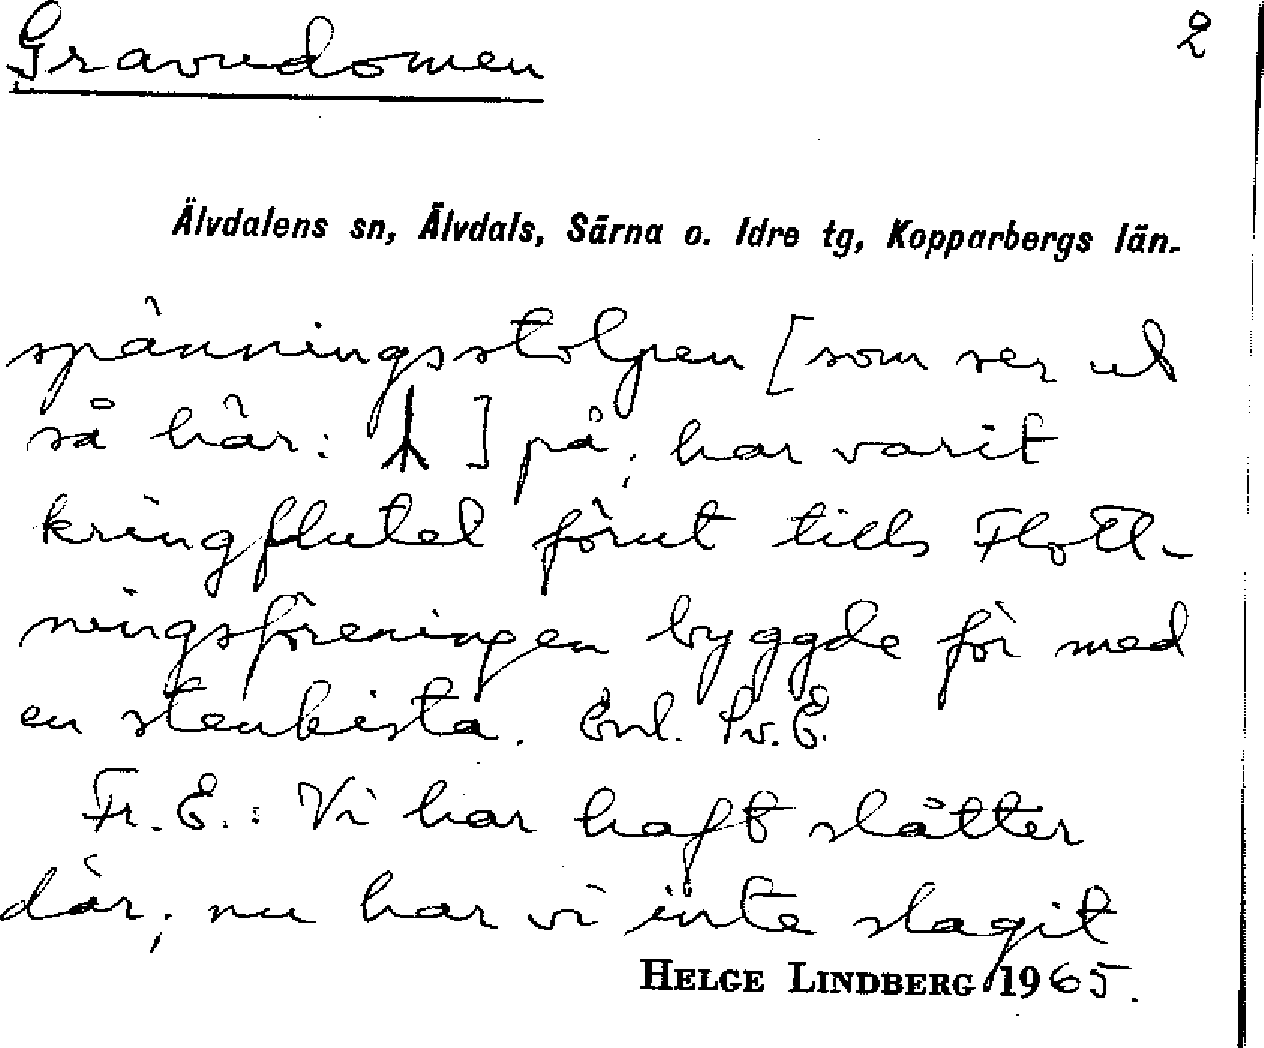 Gravudomen 2
Älvdalens sn, Älvdals, Särna o. Idre tg, Kopparbergs län.
spänningsstolpen [som ser ut
så här: ] på; har varit
kringflutet förut tills Flott-
ningsföreningen byggde för med
en stenkista. Enl. Sv. E.
Fr. E.: Vi har haft slåtter
där; nu har vi inte slagit
HELGE LINDBERG 1965.